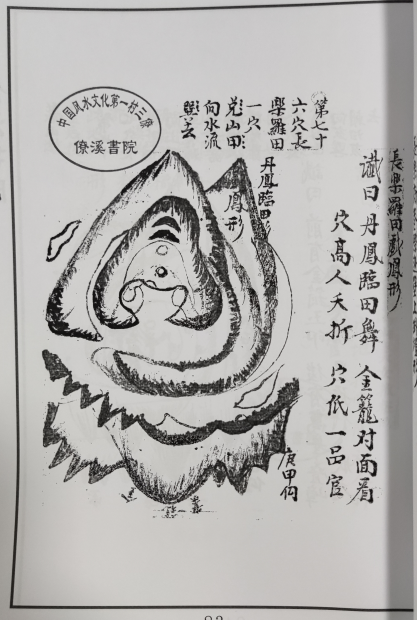 長樂羅田獻鳳形
讖曰丹鳳臨田舞 金籠对面看
穴高人夭折 穴低一品官
第七十
六穴長
樂羅田
一穴
兌山
向水流
巽去
丹鳳臨田形
鳳形
中国风水文化第一村三僚
僚溪書院
庚甲向